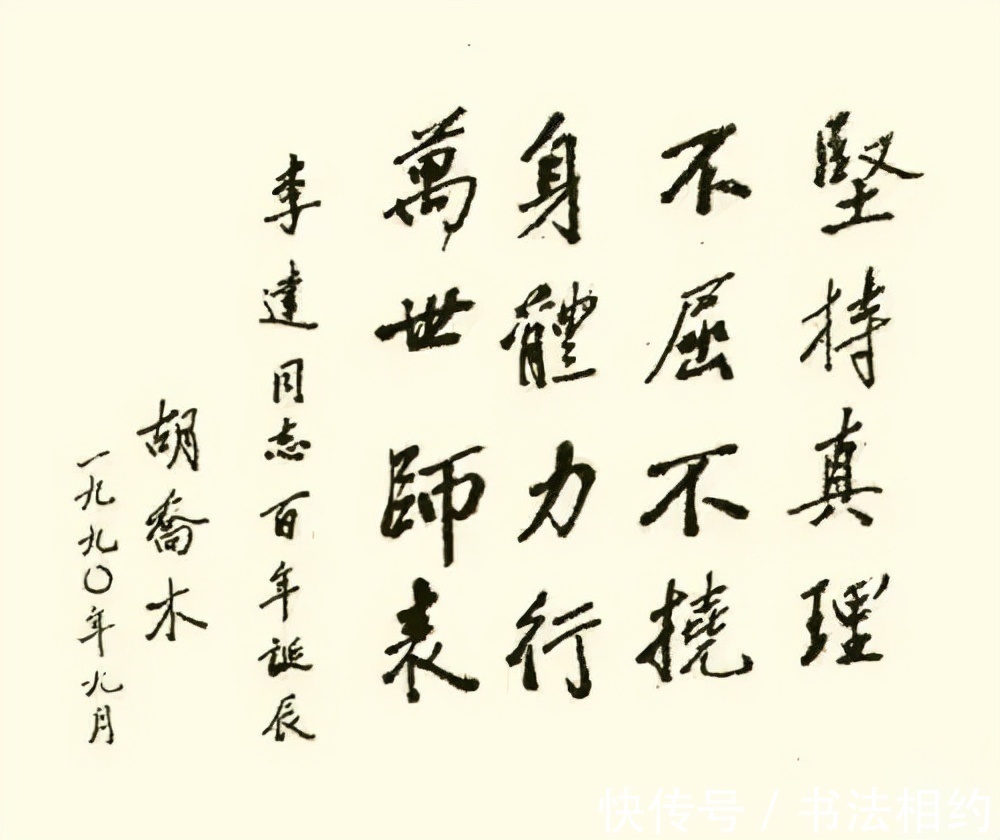 堅持真理
不屈不撓
身體力行
萬世師表
李達同志百年誕辰
胡喬木
一九九〇年九月
快传号 / 书法相约